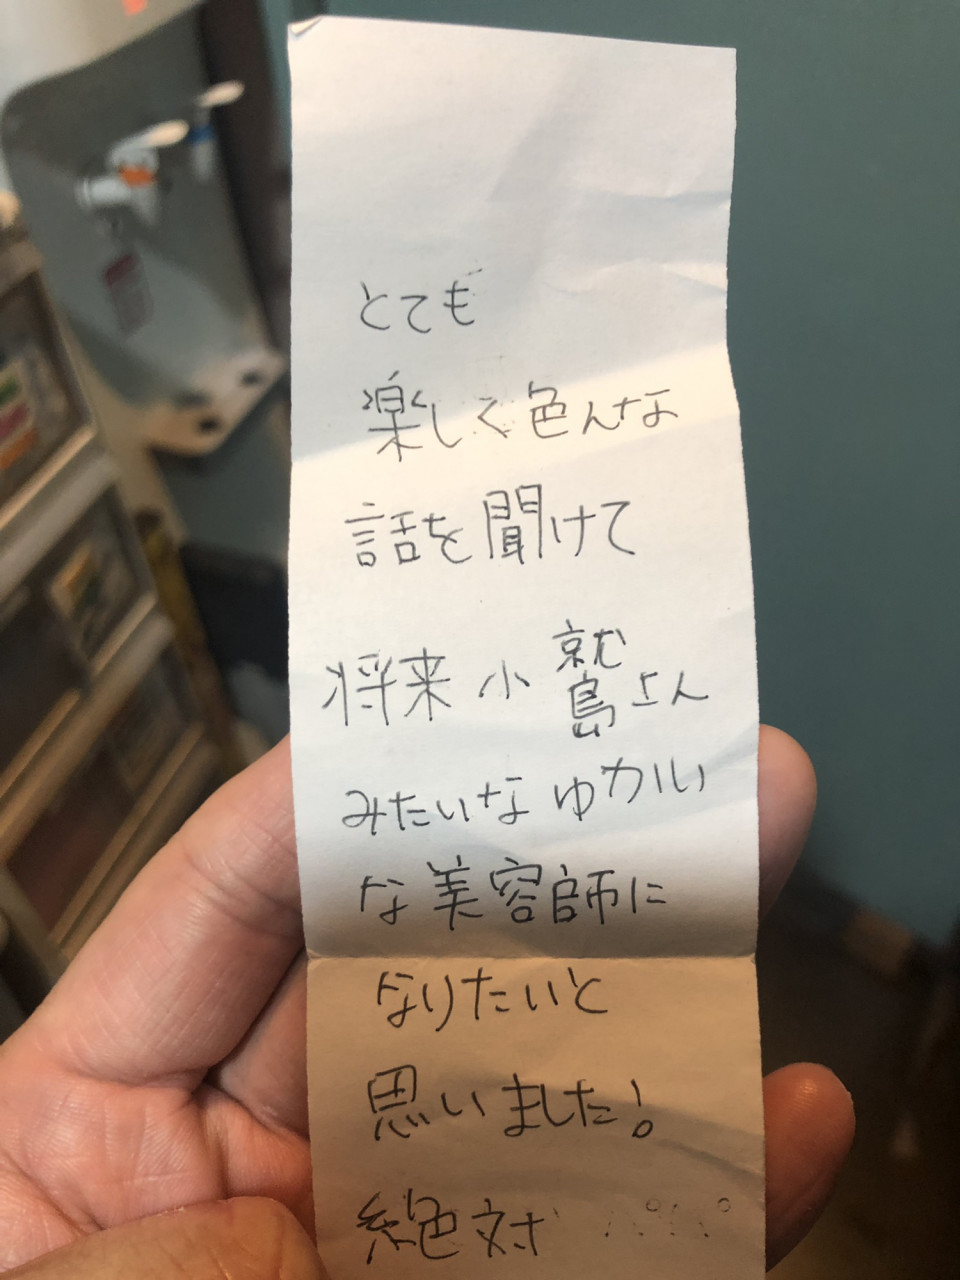 とても
楽しく色んな
話を聞けて
将来 小鷲さん
みたいなゆかい
な美容師に
なりたいと
思いました!
絶対